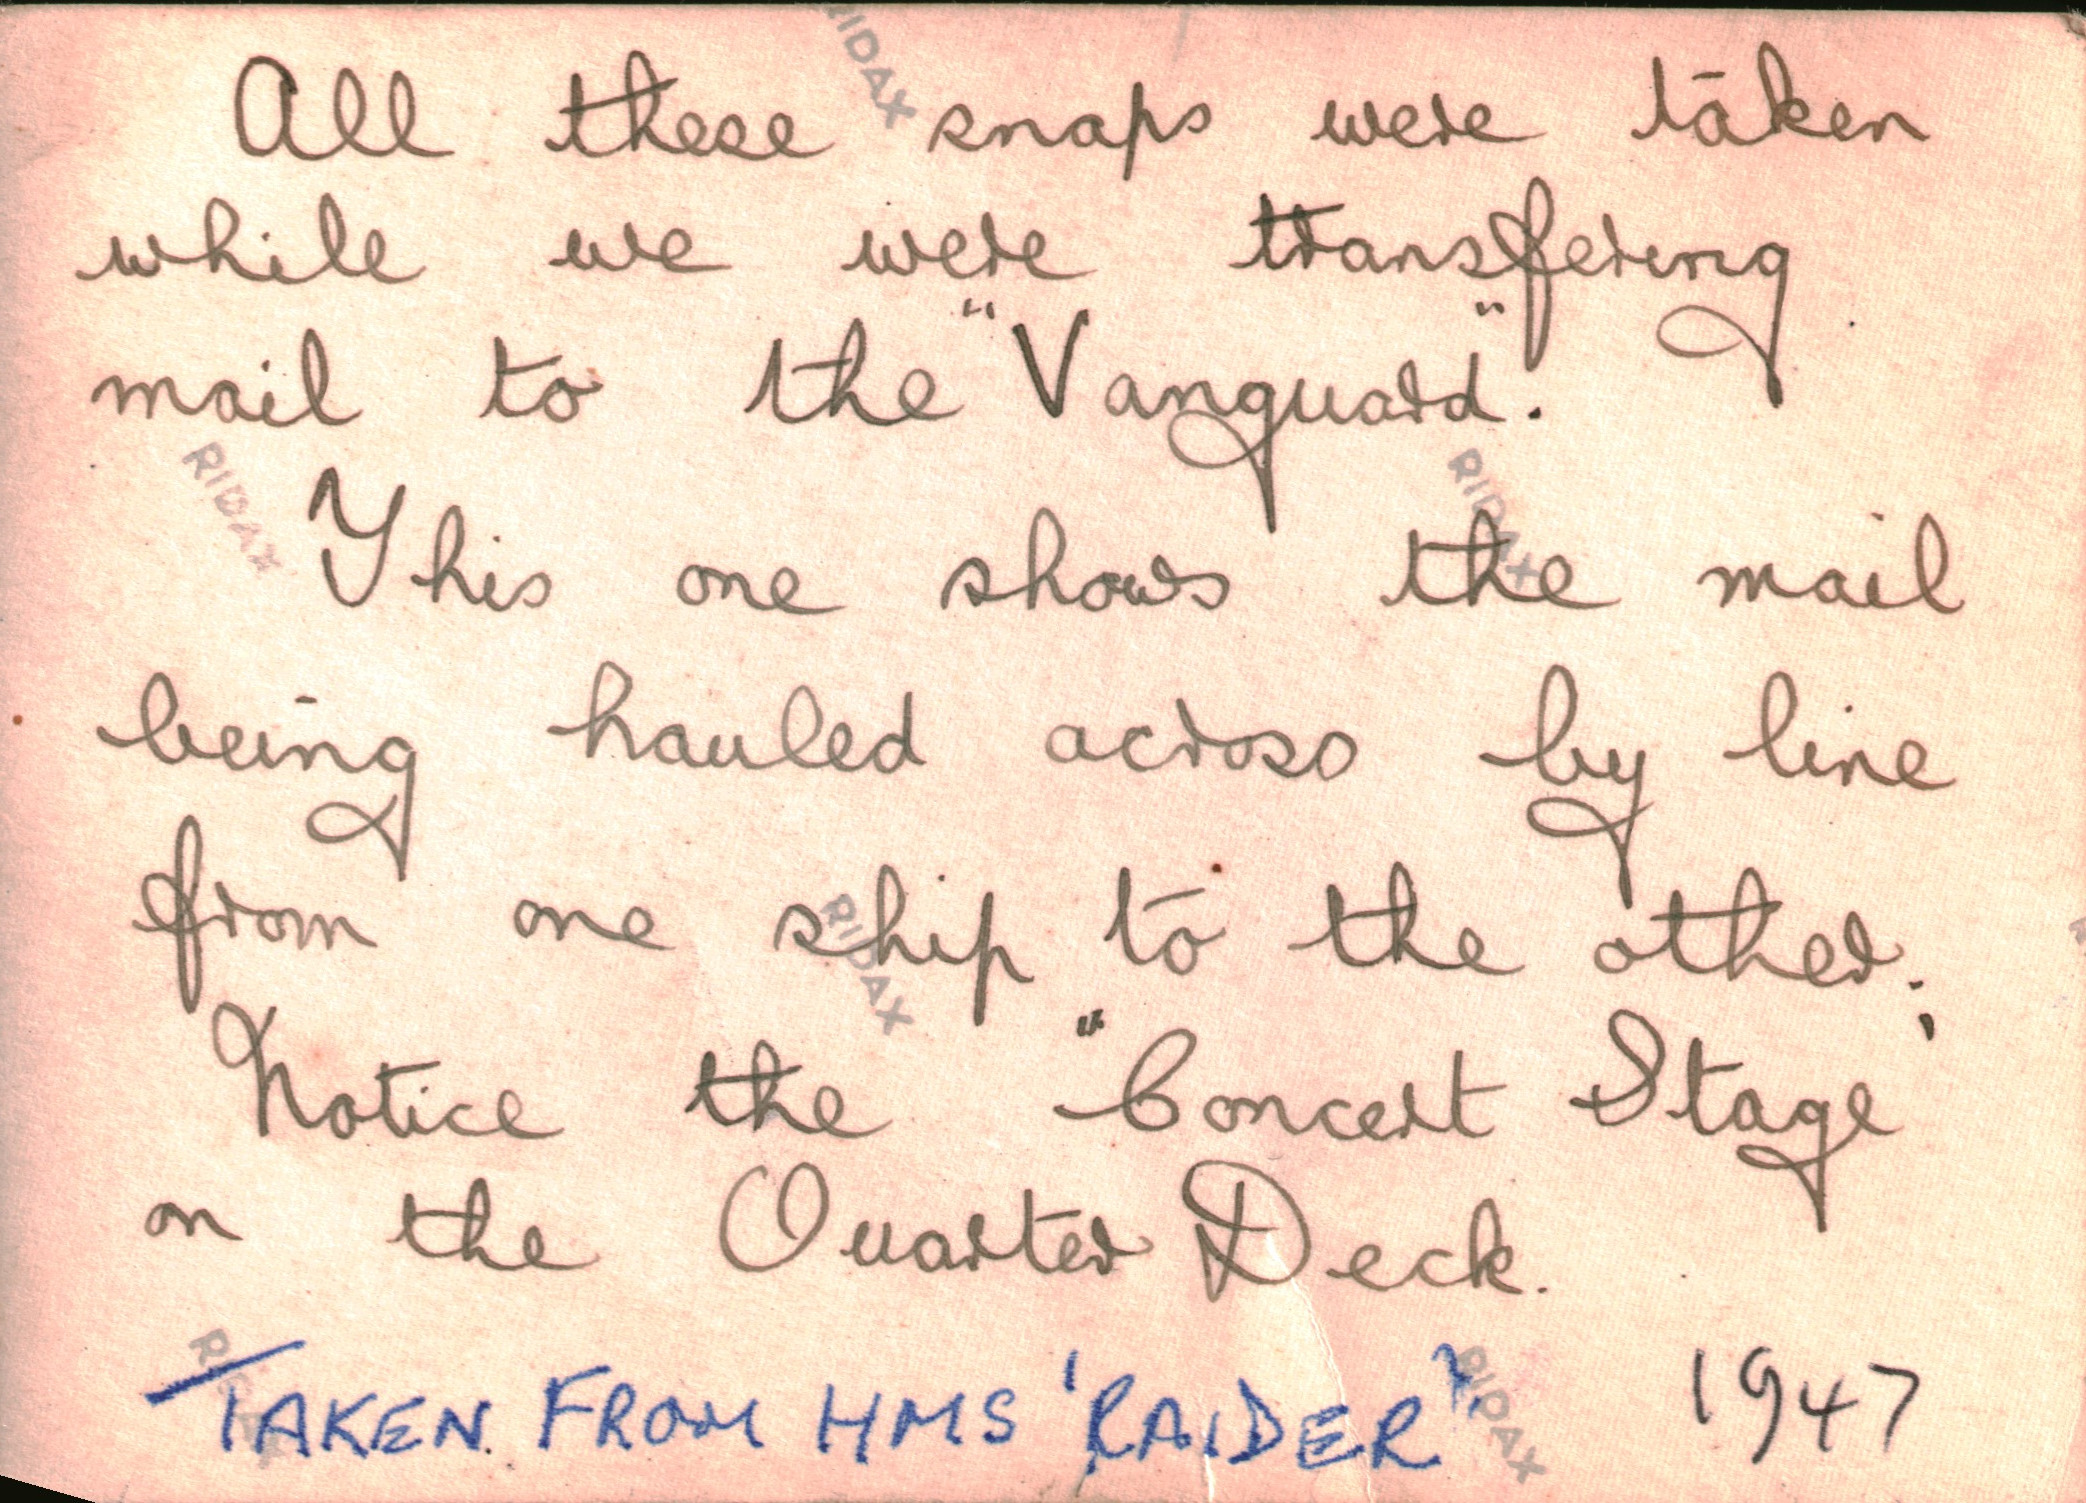 All these snaps were taken
while we were transfering
mail to the "Vanguard".
This one shows the mail
being hauled across by line
from one ship to the other.
Notice the "Concert Stage'
on the Quarter Deck.
TAKEN FROM HMS 'RAIDER'. 1947
RIDAX
RIDAX
RIDAX
RIDAX
RIDAX
RIDAX